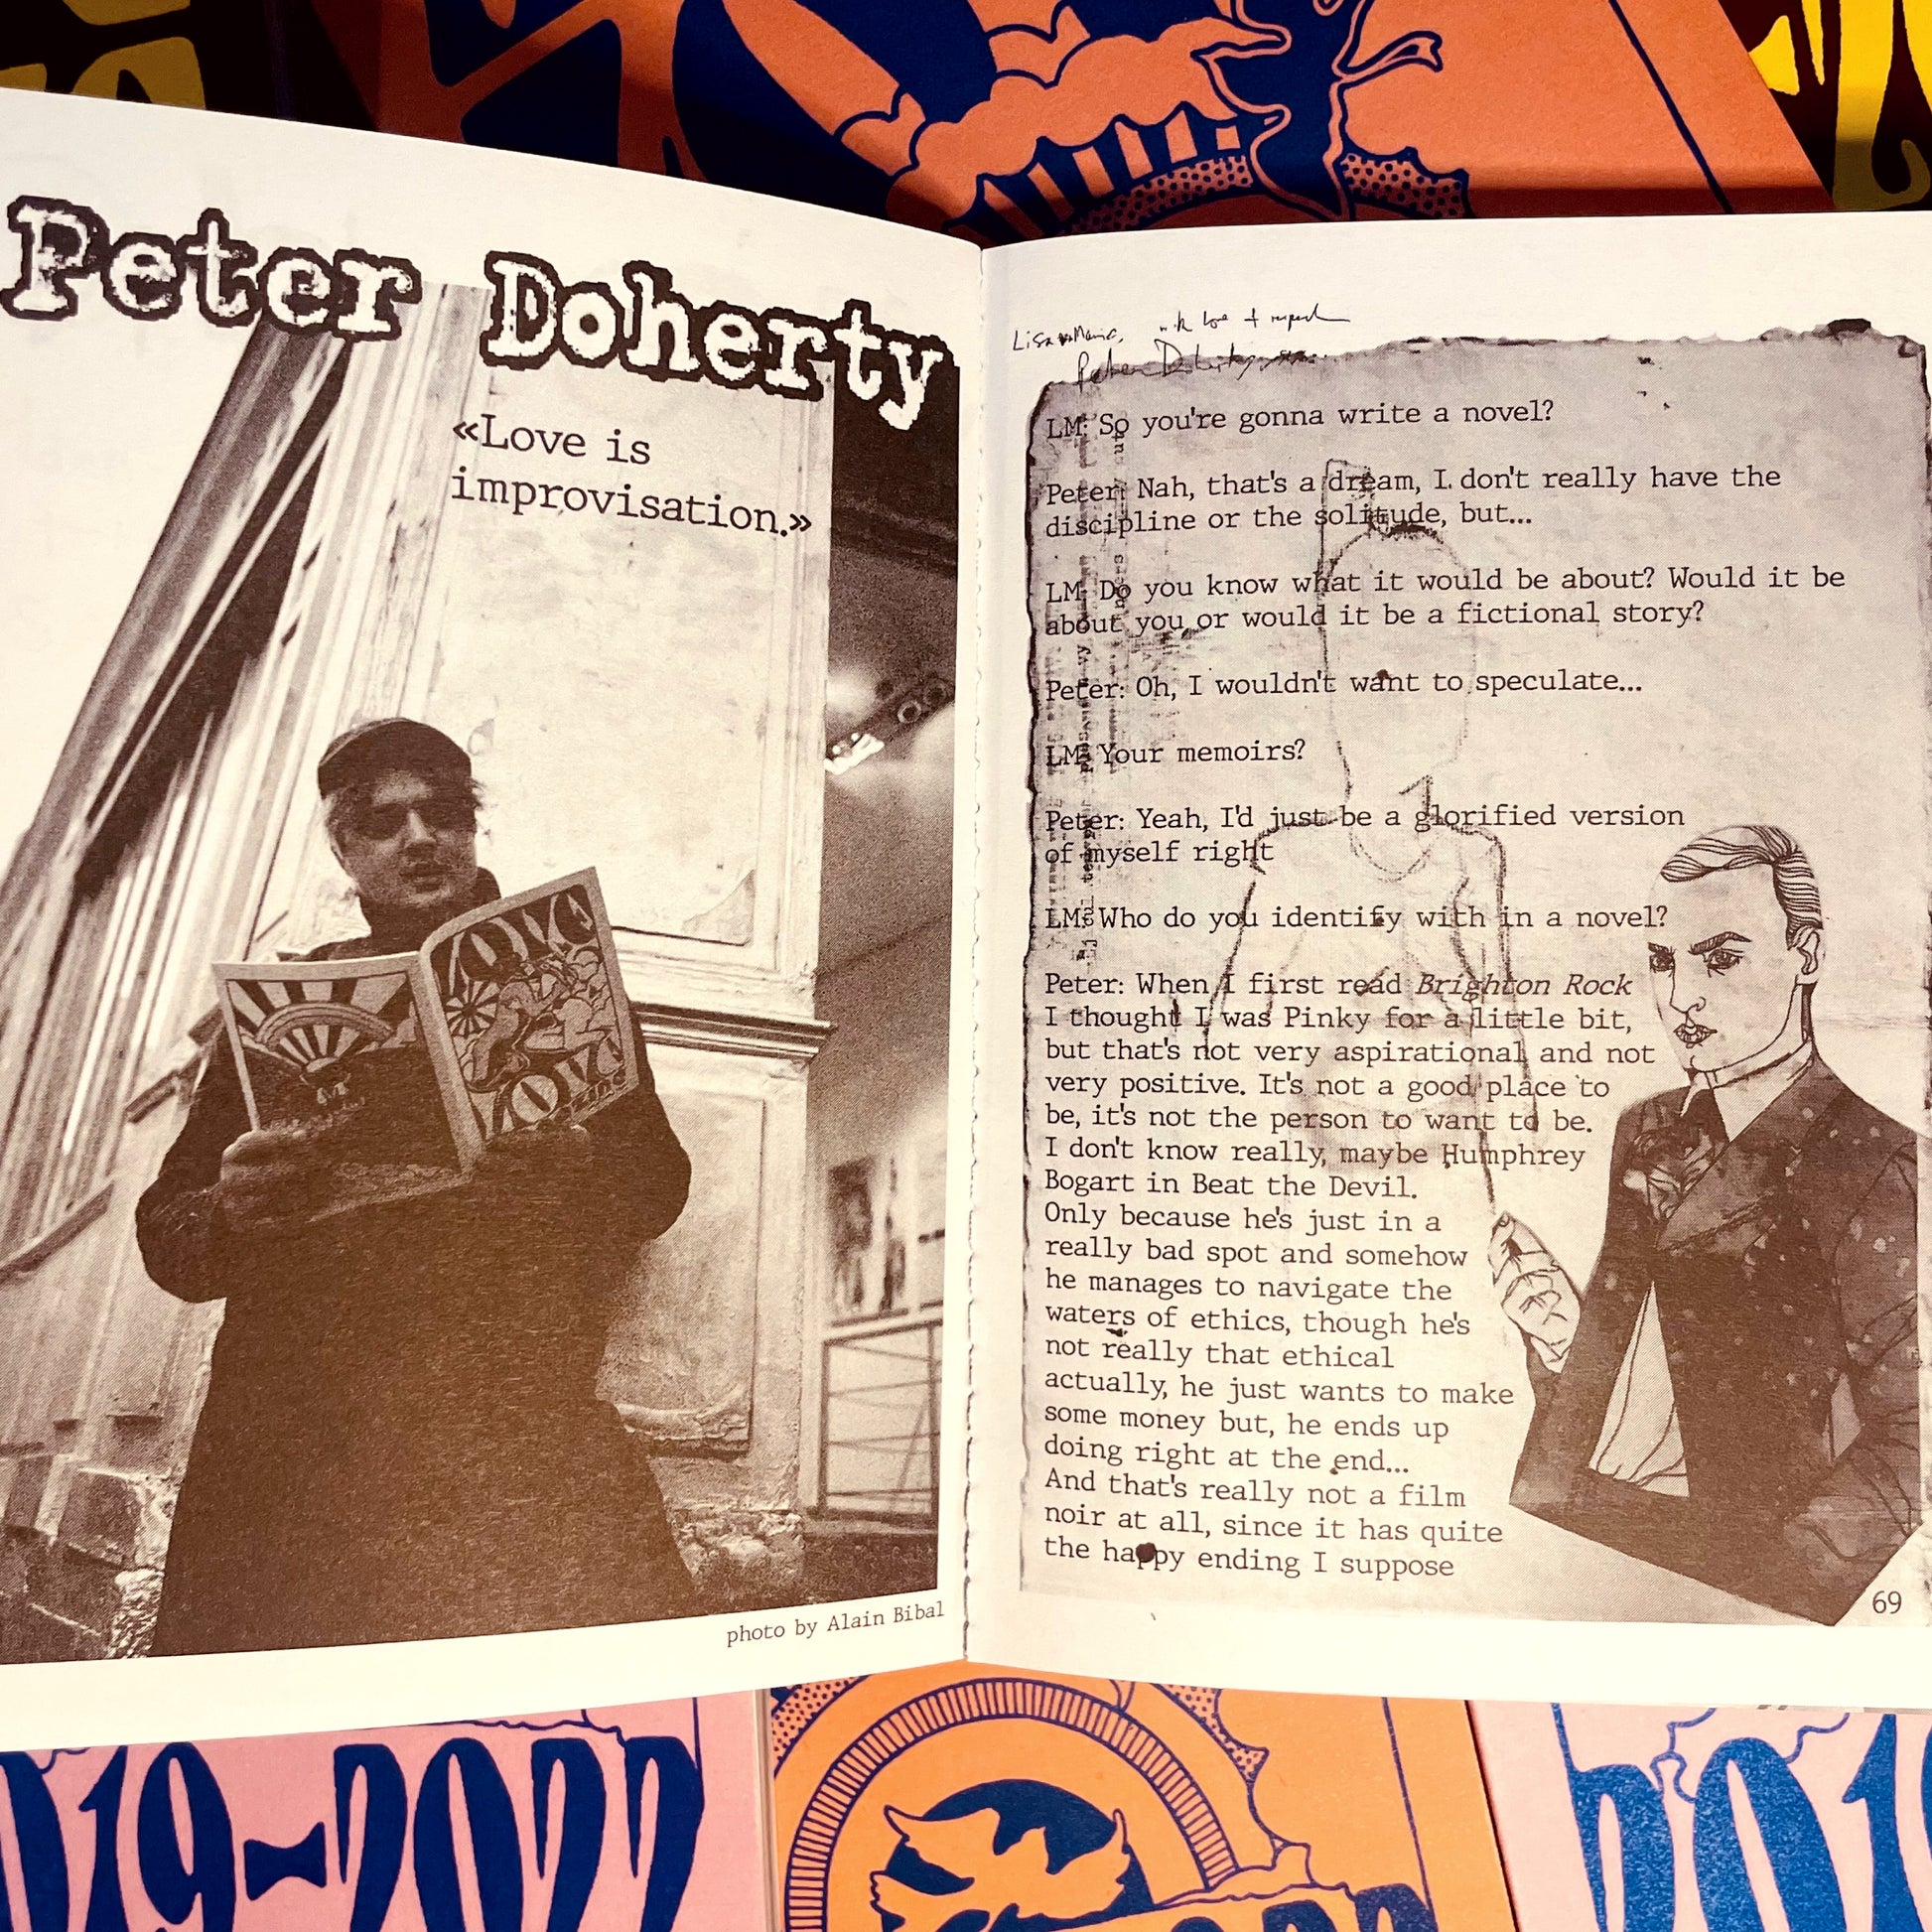 Peter Doherty
«Love is
improvisation.»
photo by Alain Bibal
Lisa Marie, with love + respect
Peter Doherty
LM: So you're gonna write a novel?
Peter: Nah, that's a dream, I don't really have the
discipline or the solitude, but...
LM: Do you know what it would be about? Would it be
about you or would it be a fictional story?
Peter: Oh, I wouldn't want to speculate...
LM: Your memoirs?
Peter: Yeah, I'd just be a glorified version
of myself right
LM: Who do you identify with in a novel?
Peter: When I first read Brighton Rock
I thought I was Pinky for a little bit,
but that's not very aspirational and not
very positive. It's not a good place to
be, it's not the person to want to be.
I don't know really, maybe Humphrey
Bogart in Beat the Devil.
Only because he's just in a
really bad spot and somehow
he manages to navigate the
waters of ethics, though he's
not really that ethical
actually, he just wants to make
some money but, he ends up
doing right at the end...
And that's really not a film
noir at all, since it has quite
the happy ending I suppose
69
019-2022